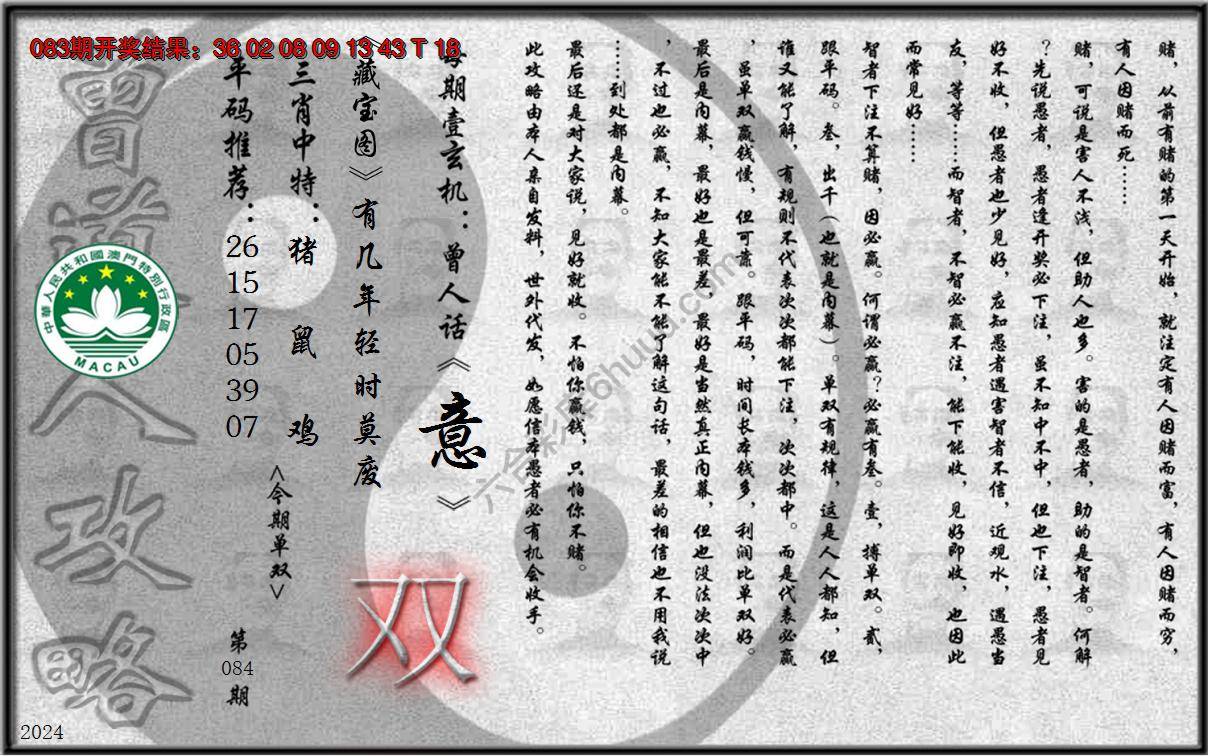 083期开奖结果：36 02 08 09 13 43 T 18
赌，从前有赌的第一天开始，就注定有人因赌而富，有人因赌而穷，
有人因赌而死……
赌，可说是害人不浅，但助人也多。害的是愚者，助的是智者。何解
？先说愚者，愚者逢开奖必下注，虽不知中不中，但也下注，愚者见
好不收，但愚者也少见好，应知愚者遇害智者不信，近观水，遇愚当
友，等等……而智者，不智必赢不注，能下能收，见好即收，也因此
而常见好……
智者下注不算赌，因必赢。何谓必赢？必赢有叁。壹，搏单双。贰，
跟平码。叁，出千（也就是内幕）。单双有规律，这是人人都知，但
谁又能了解，有规则不代表次次都能下注，次次都中。而是代表必赢
，虽单双赢钱慢，但可靠。跟平码，时间长本钱多，利润比单双好。
最后是内幕，最好也是最差，最好是当然真正内幕，但也没法次次中
，不过也必赢，不知大家能不能了解这句话，最差的相信也不用我说
……到处都是内幕。
最后还是对大家说，见好就收。不怕你赢钱，只怕你不赌。
此攻略由本人亲自发料，世外代发，如愿信本愚者必有机会收手。
每期壹玄机：曾人话《意》
《藏宝图》有几年轻时莫废
三肖中特：猪 鼠 鸡
<今期单双>
双
平码推荐：26 15 17 05 39 07
第084期
曾道人攻略
中華人民共和國澳門特別行政區
MACAU
六合彩库6huuu.com
2024